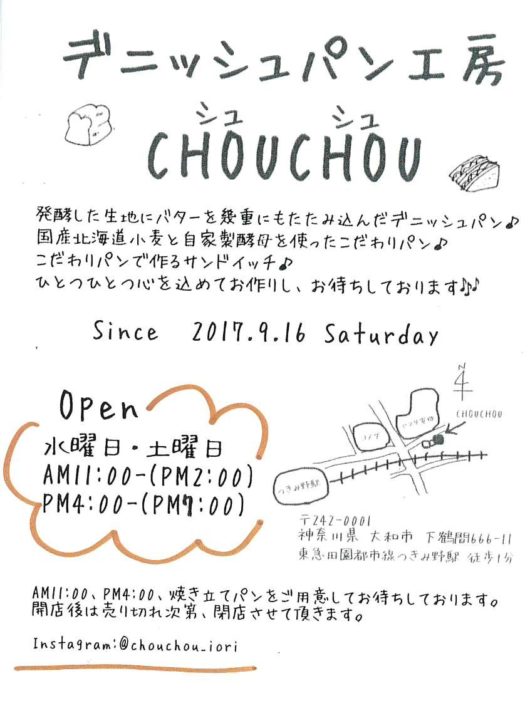 デニッシュパン工房
シュ シュ
CHOUCHOU
発酵した生地にバターを幾重にもたたみ込んだデニッシュパン♪
国産北海道小麦と自家製酵母を使ったこだわりパン♪
こだわりパンで作るサンドイッチ♪
ひとつひとつ心を込めてお作りし、お待ちしております♪♪
Since 2017.9.16 Saturday
Open
水曜日・土曜日
AM11:00-(PM2:00)
PM4:00-(PM7:00)
N
CHOUCHOU
つきみ野駅
〒242-0001
神奈川県 大和市 下鶴間666-11
東急田園都市線つきみ野駅 徒歩1分
AM11:00、PM4:00、焼き立てパンをご用意してお待ちしております。
開店後は売り切れ次第、閉店させて頂きます。
Instagram:@chouchou_iori